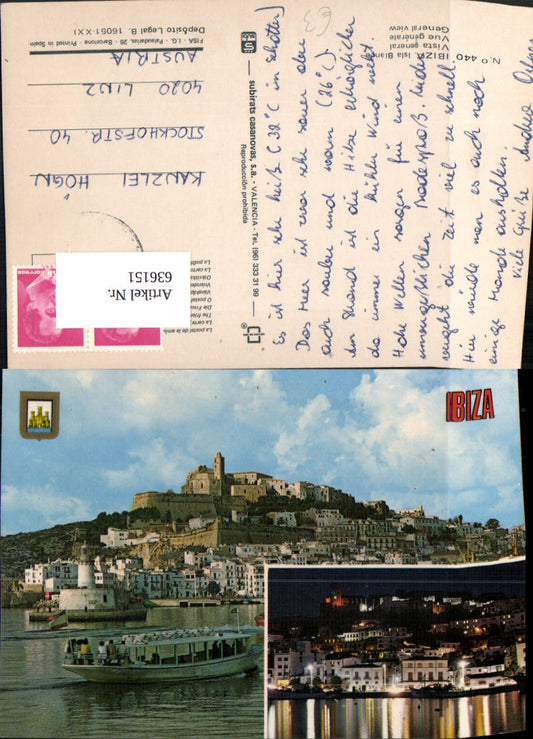 N.º 440
IBIZA Isla Blanca
Vista general
Vue générale
General view
FISA - I.G. - Palaudarias, 26 - Barcelona - Printed in Spain
Depósito Legal B. 16051-XXI
subirats casanovas, s.a. - VALENCIA - Tel. (96) 333 31 99
Reproducción prohibida
Es ist hier sehr heiß (38°C im Schatten)
Das Meer ist zwar sehr sauer aber
auch sauber und warm (26°C).
Am Strand ist die Hitze erträglicher
da immer ein kühler Wind weht.
Hohe Wellen sorgen für einen
unvergeßlichen Badespaß. Leider
vergeht die Zeit viel zu schnell.
Hier würde man es auch noch
einige Monate aushalten.
Viele Grüße Andrea
KANZLEI HÖGN
STOCKHOFSTR. 40
4020 LINZ
AUSTRIA
correos
Artikel Nr.
636151
IBIZA